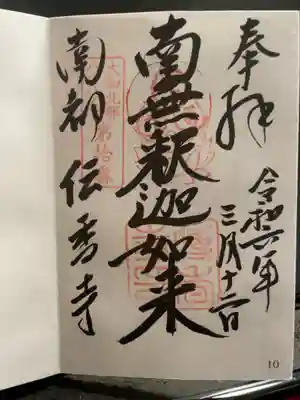 奉拝
令和六年
三月十二日
南無釈迦如来
南都 伝香寺
10